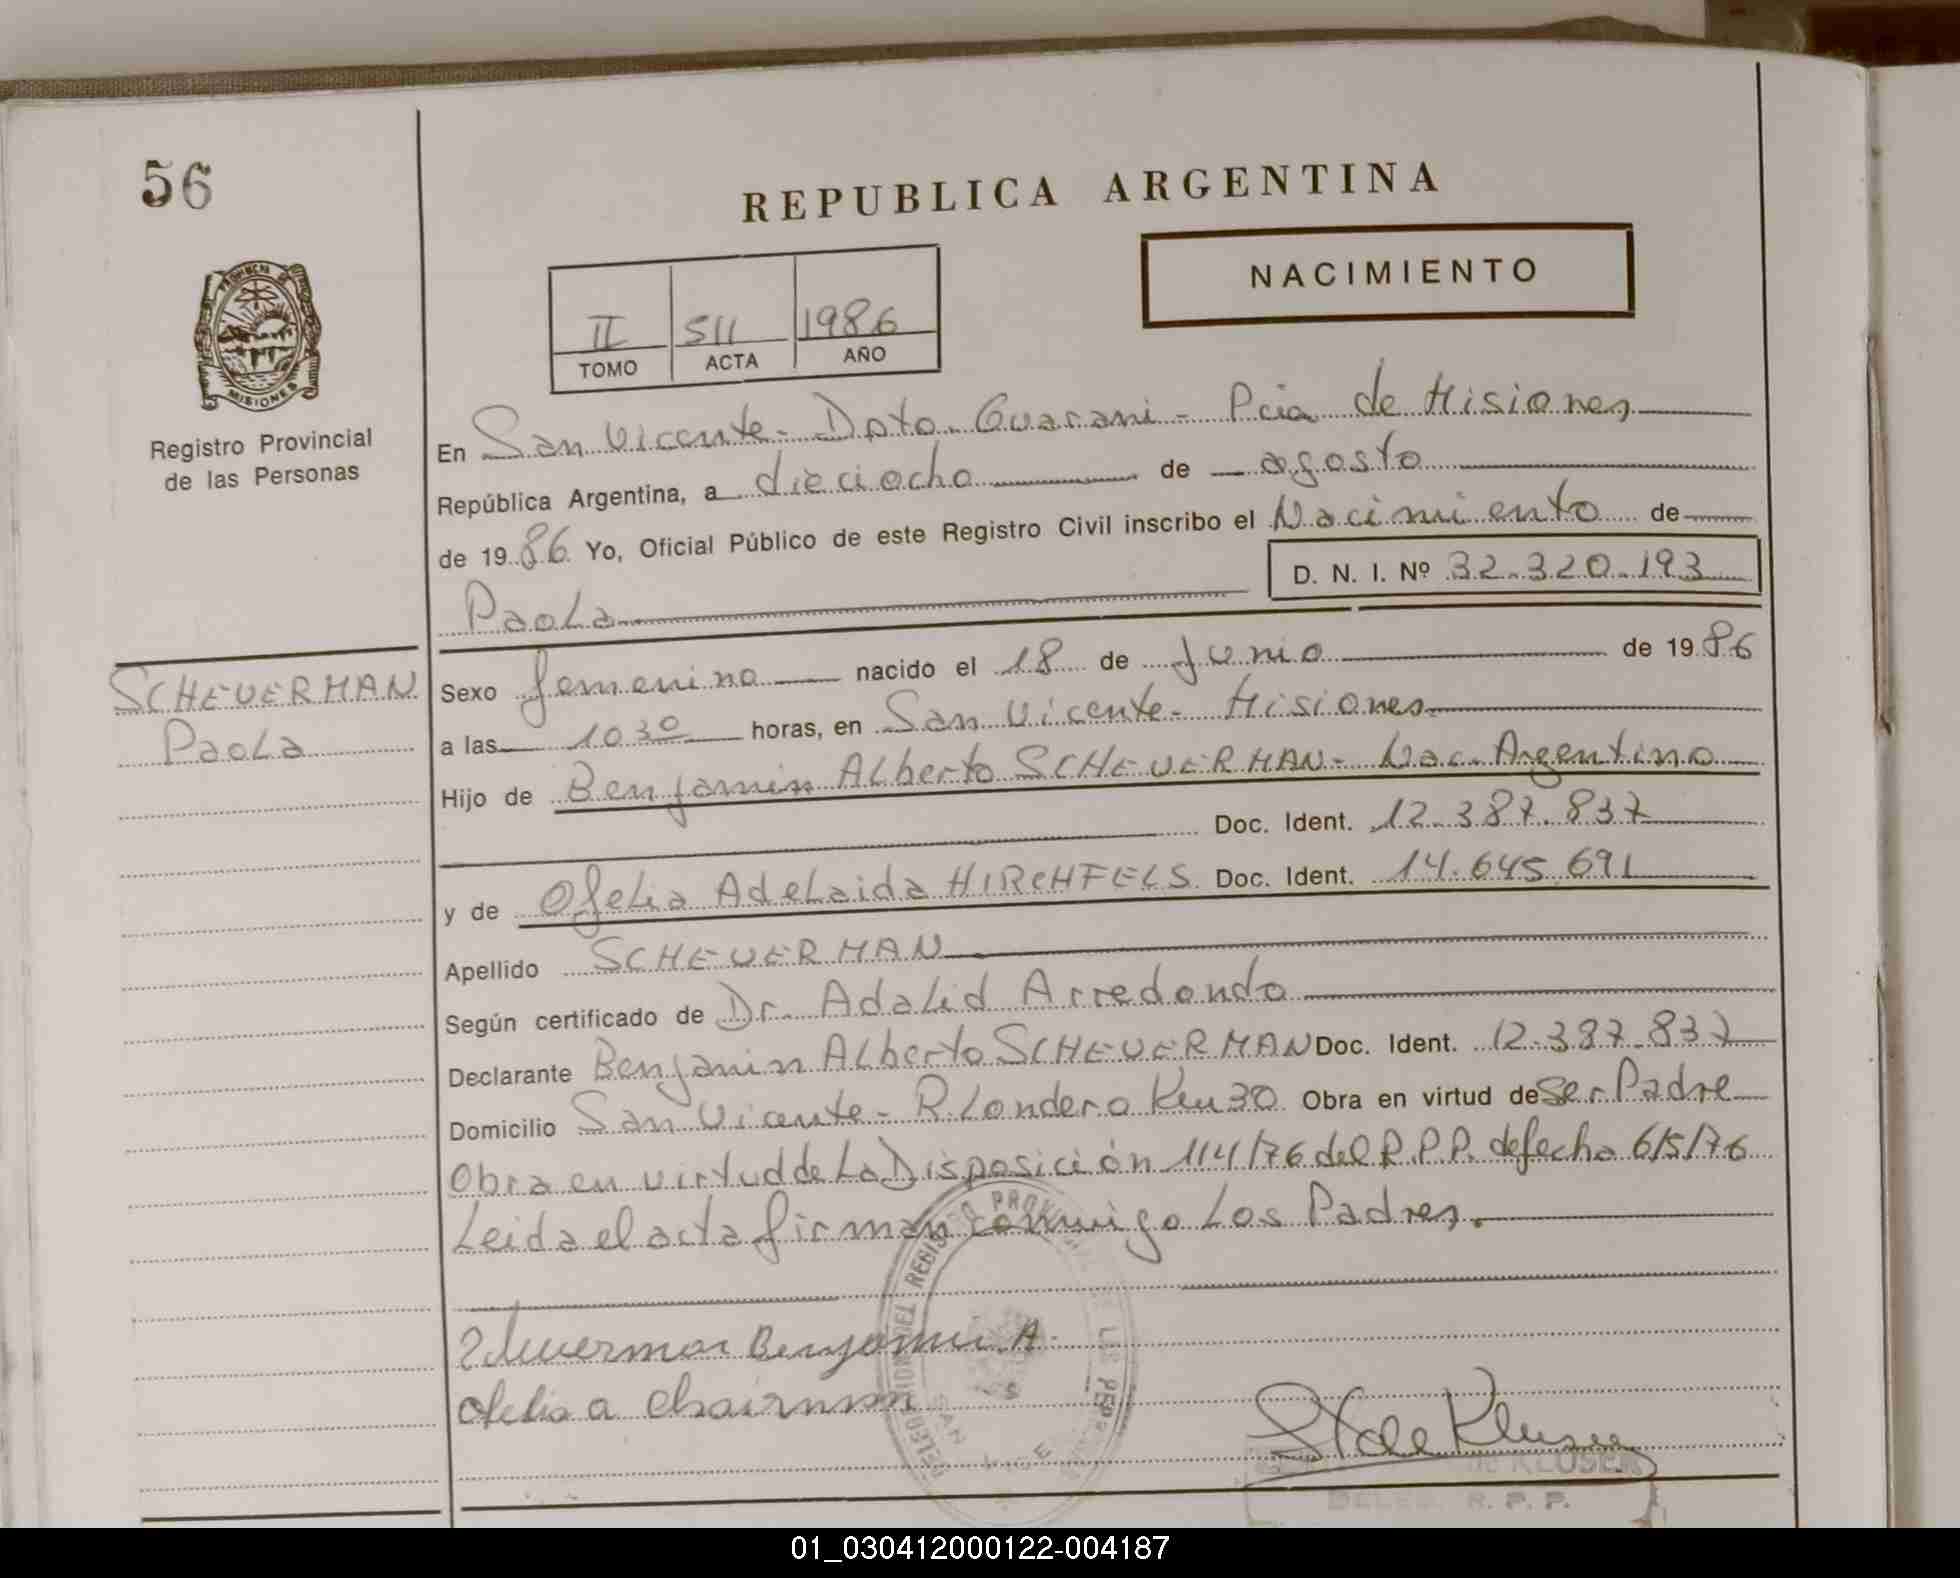 56
REPUBLICA ARGENTINA
NACIMIENTO
II 511 1986
TOMO ACTA AÑO
PROVINCIA DE
MISIONES
Registro Provincial
de las Personas
En San Vicente - Dpto. Guarani - Pcia de Misiones
República Argentina, a dieciocho de agosto
de 1986 Yo, Oficial Público de este Registro Civil inscribo el Nacimiento de
D. N. I. Nº 32.320.193
Paola
SCHEUERMAN
Paola
Sexo femenino nacido el 18 de Junio de 1986
a las 1030 horas, en San Vicente - Misiones
Hijo de Benjamin Alberto SCHEUERMAN - Nac. Argentino
Doc. Ident. 12.387.837
y de Ofelia Adelaida HIRCHFELS Doc. Ident. 14.645.691
Apellido SCHEUERMAN
Según certificado de Dr. Adalid Arredondo
Declarante Benjamin Alberto SCHEUERMAN Doc. Ident. 12.387.837
Domicilio San Vicente - R. Londero Km 30 Obra en virtud de Ser Padre
Obra en virtud de La Disposición 114/76 del R.P.P. de fecha 6/5/76
Leida el acta firman conmigo Los Padres.
Benjamin A.
Ofelia A
de KLUSER
DELEG. R. P. P.
DELEGACION DEL REGISTRO PROVINCIAL DE LAS PERSONAS
SAN VICENTE
01_030412000122-004187